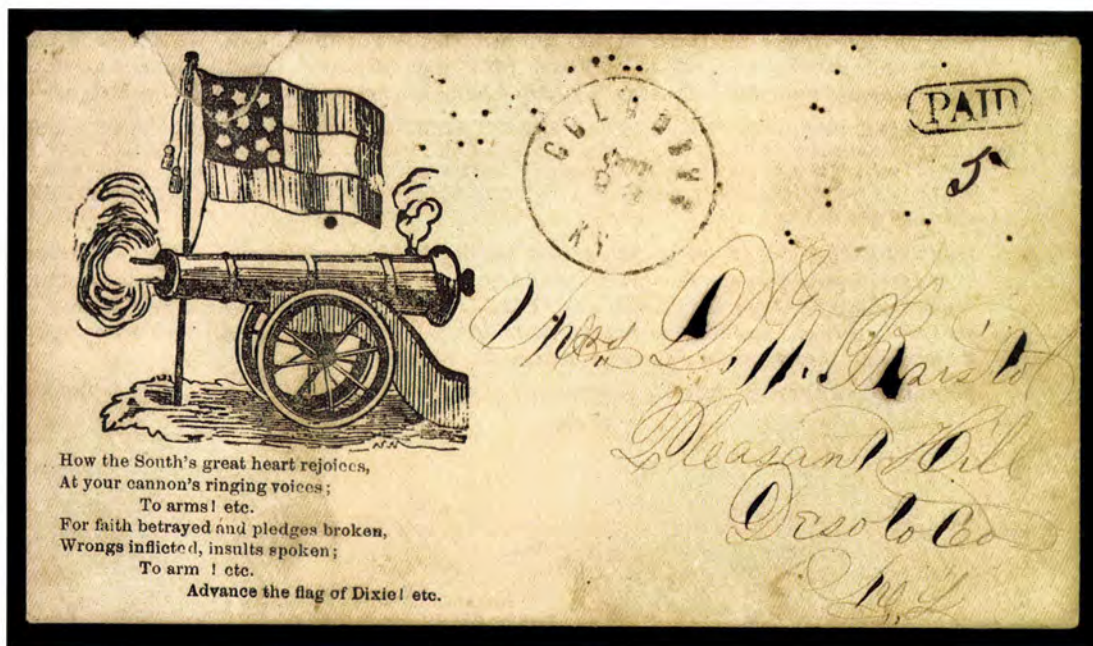 COLUMBUS
KY
PAID
5
Mrs D. W.
Pleasant Hill
Desoto Co
How the South's great heart rejoices,
At your cannon's ringing voices;
To arms! etc.
For faith betrayed and pledges broken,
Wrongs inflicted, insults spoken;
To arm ! etc.
Advance the flag of Dixie! etc.